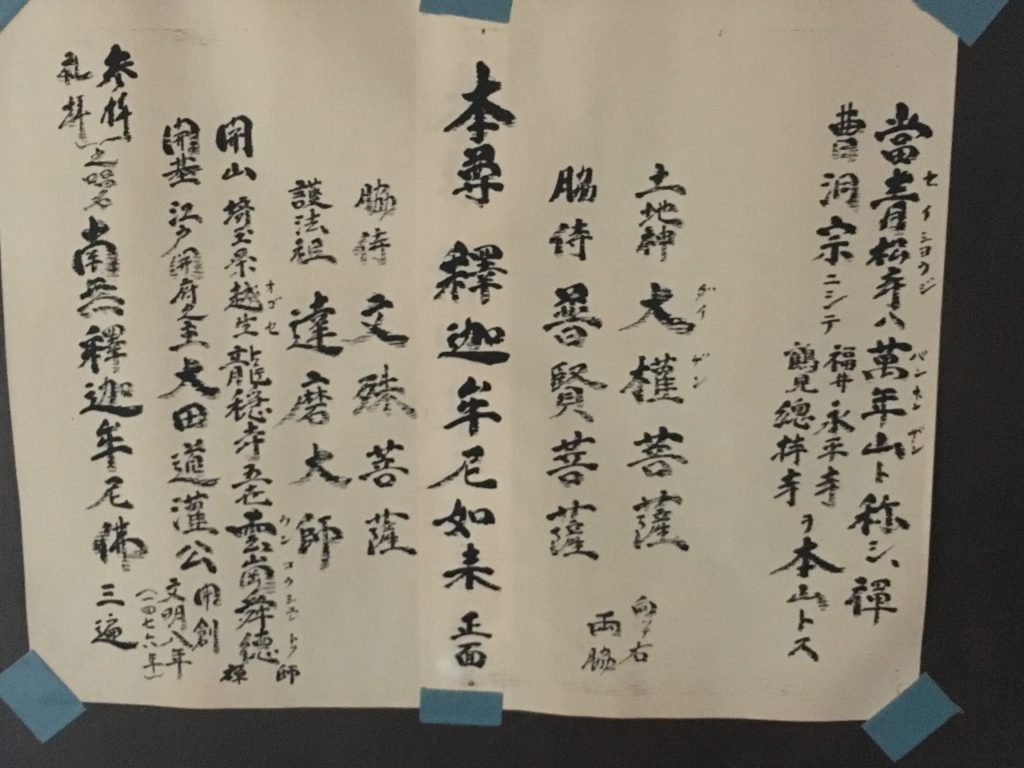 當青松寺ハ萬年山ト称シ、禅
セイシヨウジ
バンネンザン
曹洞宗ニシテ福井永平寺
鶴見總持寺ヲ本山トス
土地神 大權菩薩
ダイゲン
脇侍 普賢菩薩
向ッテ右
両脇
本尊 釋迦牟尼如来 正面
脇侍 文殊菩薩
護法祖 達磨大師
開山 埼玉県越生龍穏寺五世雲崗舜徳禅師
オゴセ
ウンコウシユントク
開基 江戸開府之主大田道灌公
開創
文明八年
(一四七六年)
参拝
礼拝
之唱名 南無釋迦牟尼佛 三遍